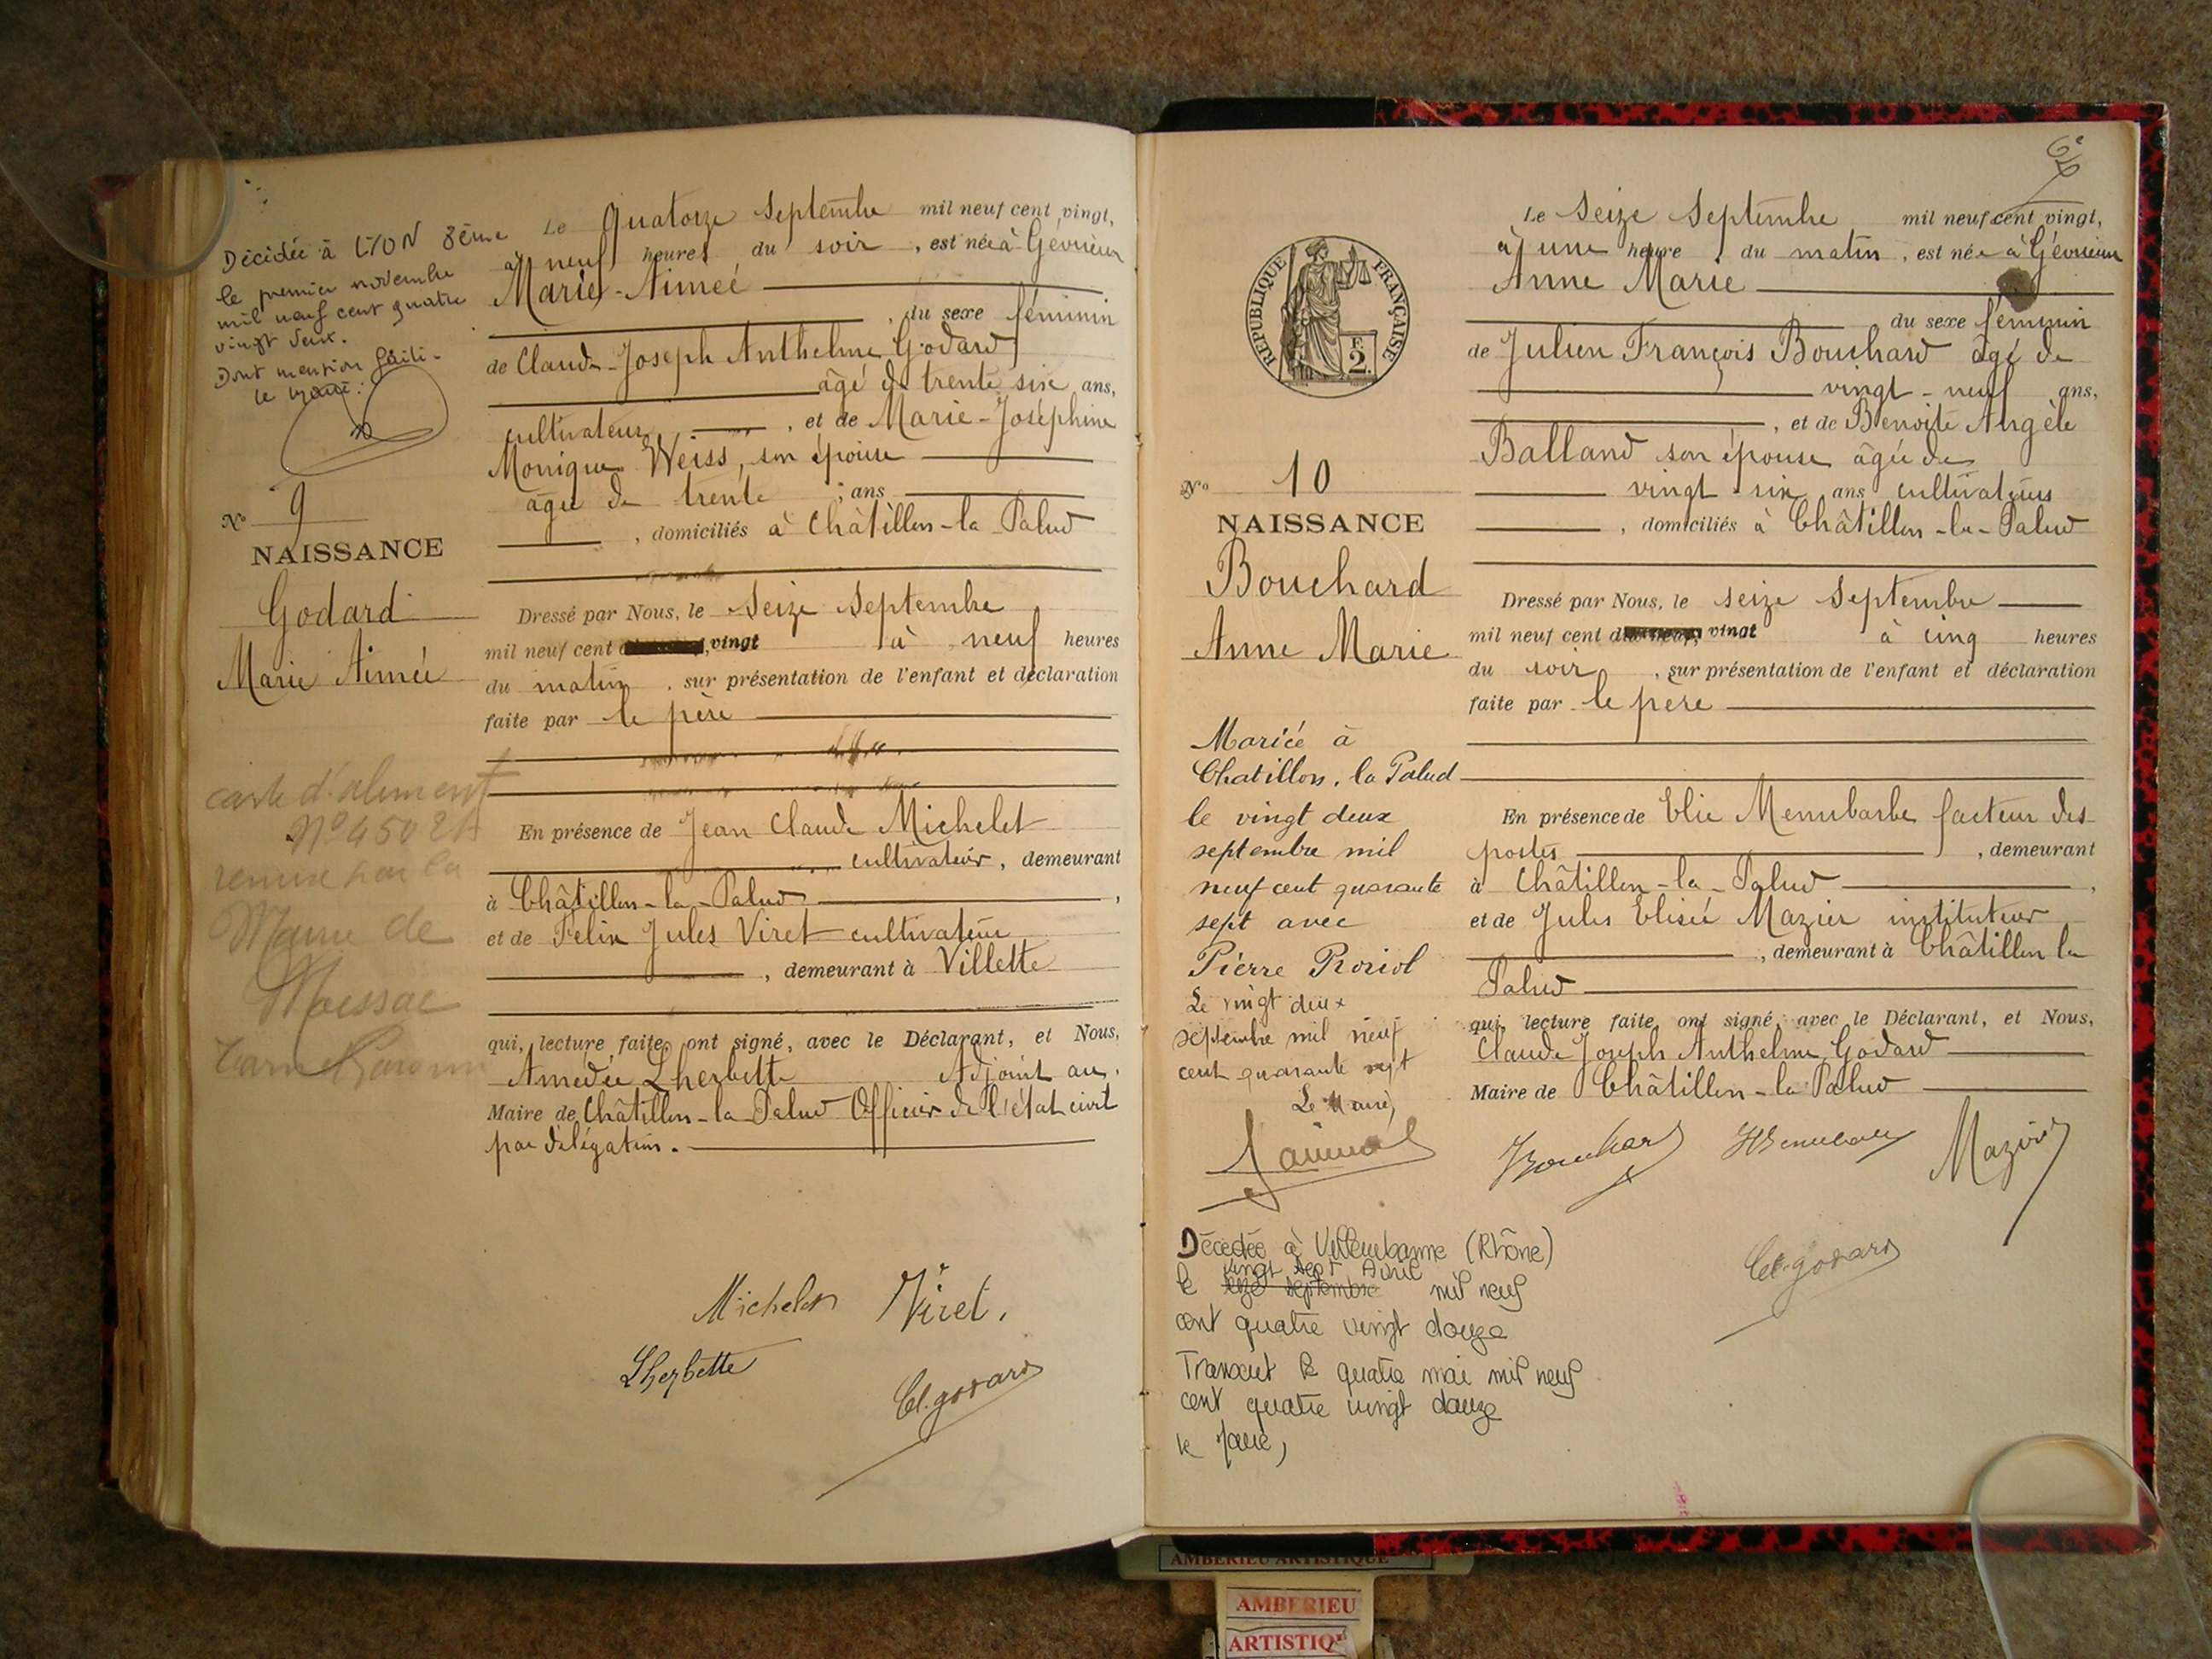 Décédée à LYON 8ème
le premier novembre
mil neuf cent quatre
vingt deux.
Dont mention faite.
le
N° 9
NAISSANCE
Godard
Marie Aimée
carte d'aliment
N° 45021
remise par la
Mairie de
Moissac
Tarn Garonne
Le Quatorze Septembre mil neuf cent vingt,
à neuf heures du soir, est née à Gévrieux
Marie-Aimée
, du sexe féminin
de Claude-Joseph Anthelme Godard
âgé de trente six ans,
cultivateur, et de Marie-Joséphine
Monique Weiss, son épouse
âgée de trente ans
, domiciliés à Châtillon-la Palud
Dressé par Nous, le Seize Septembre
mil neuf cent vingt à neuf heures
du matin, sur présentation de l'enfant et déclaration
faite par le père
En présence de Jean Claude Michelet
cultivateur, demeurant
à Châtillon-la-Palud,
et de Félix Jules Viret cultivateur
, demeurant à Villette
qui, lecture faite, ont signé, avec le Déclarant, et Nous,
Amédée Lherbette Adjoint au
Maire de Châtillon-la Palud Officier de l'état civil
par délégation.
Michelet Viret.
Lherbette
Cl. godard
RÉPUBLIQUE FRANÇAISE
F.
2.
N° 10
NAISSANCE
Bouchard
Anne Marie
Mariée à
Chatillon, la Palud
le vingt deux
septembre mil
neuf cent quarante
sept avec
Pierre Roriol
Le vingt deux
septembre mil neuf
cent quarante sept
Le Maire,
Décédée à Villeurbanne (Rhône)
vingt sept Avril
le seize septembre mil neuf
cent quatre vingt douze
Transcrit le quatre mai mil neuf
cent quatre vingt douze
le Maire,
Le Seize Septembre mil neuf cent vingt,
à une heure du matin, est née à Gévrieux
Anne Marie
du sexe féminin
de Julien François Bouchard âgé de
vingt-neuf ans,
, et de Benoite Angèle
Balland son épouse âgée de
vingt-six ans cultivateurs
, domiciliés à Châtillon-la-Palud
Dressé par Nous, le seize Septembre
mil neuf cent vingt à cinq heures
du soir, sur présentation de l'enfant et déclaration
faite par le père
En présence de Elie Menubarbe facteur des
postes, demeurant
à Châtillon-la-Palud,
et de Jules Elisée Mazier instituteur
, demeurant à Châtillon la
Palud
qui, lecture faite, ont signé, avec le Déclarant, et Nous,
Claude Joseph Anthelme Godard
Maire de Châtillon-la Palud
Bouchard Mazier
Cl. godard
AMBERIEU ARTISTIQUE
AMBERIEU
ARTISTIQ